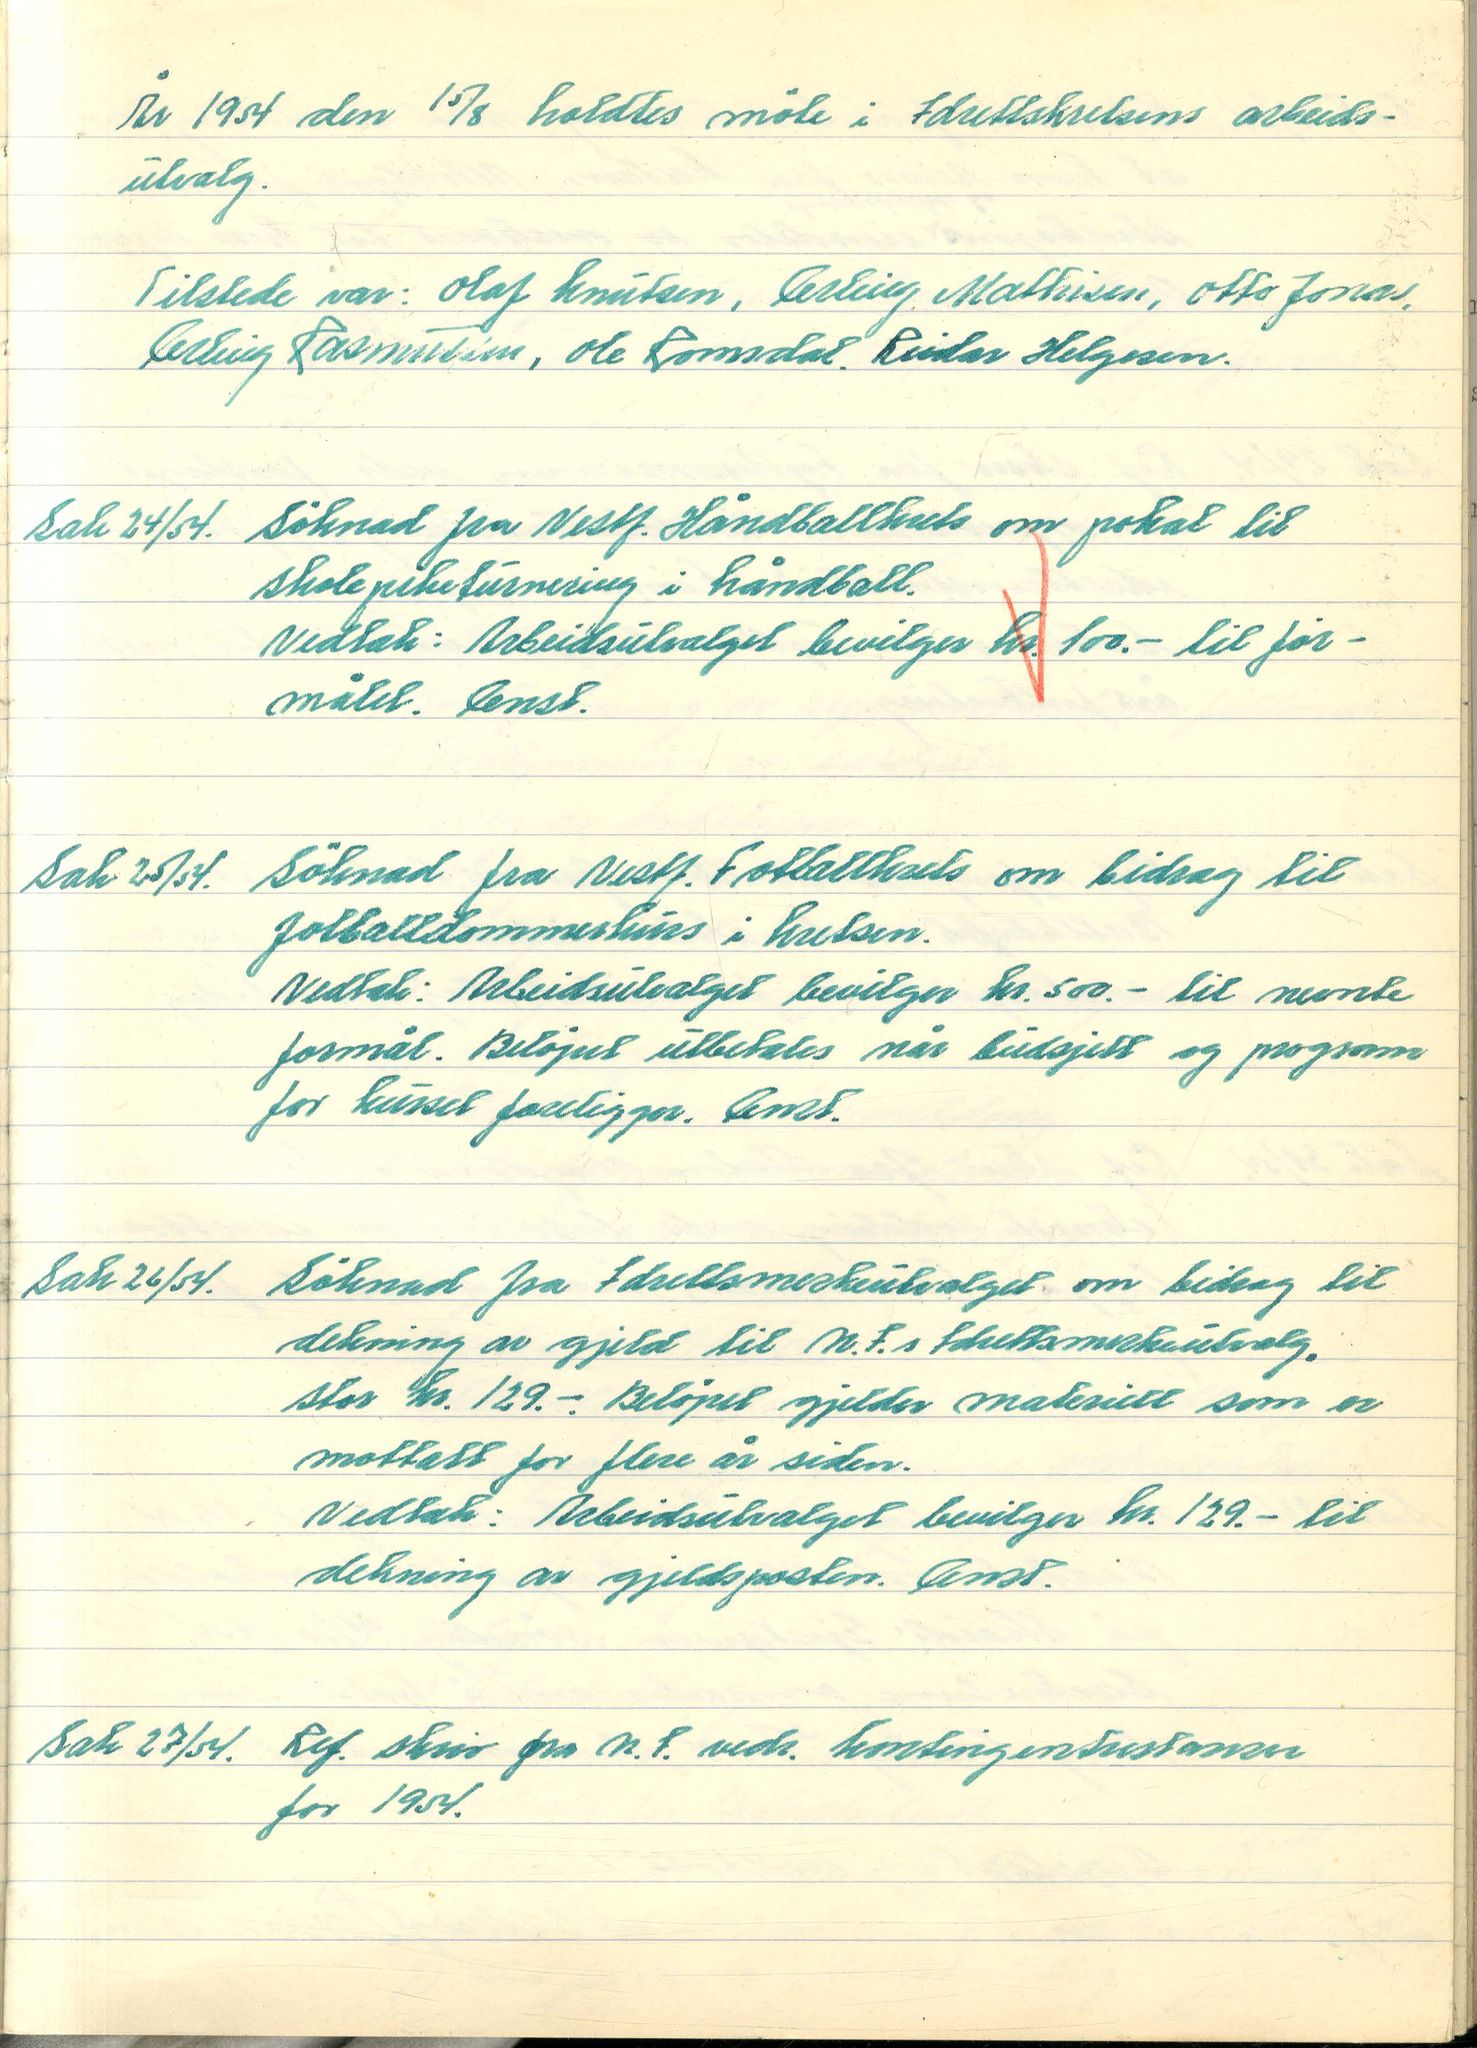 År 1954 den 15/8 holdtes möte i Idrettskretsens arbeids-
utvalg.
Tilstede var: Olaf Knutsen, Erling Mathisen, Otto Jonas,
Erling Rasmussen, Ole Romsdal. Reidar Helgesen.
Sak 24/54. Söknad fra Vestf. Håndballkrets om pokal til
skolepiketurnering i håndball.
Vedtak: Arbeidsutvalget bevilger kr. 100.- til for-
målet. Enst.
Sak 25/54. Söknad fra Vestf. Fotballkrets om bidrag til
fotballdommerkurs i kretsen.
Vedtak: Arbeidsutvalget bevilger kr. 500.- til nevnte
formål. Belöpet utbetales når budsjett og program
for kurset foreligger. Enst.
Sak 26/54. Söknad fra Idrettsmerkeutvalget om bidrag til
dekning av gjeld til N.I.s Idrettsmerkeutvalg.
stor kr. 129.-. Belöpet gjelder materiell som er
mottatt for flere år siden.
Vedtak: Arbeidsutvalget bevilger kr. 129.- til
dekning av gjeldsposten. Enst.
Sak 27/54. Ref. skriv fra N.I. vedr. kontingentrestanser
for 1954.